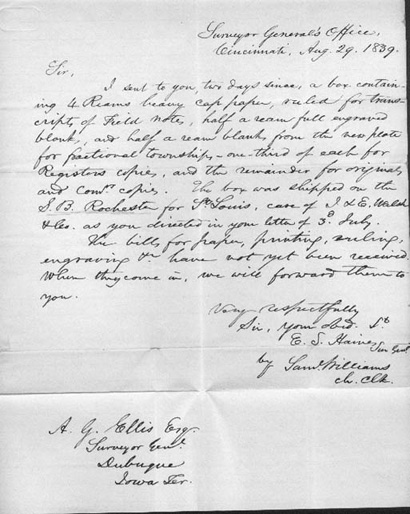 Surveyor General's Office,
Cincinnati, Aug. 29. 1839.
Sir,
I sent to you, two days since, a box contain-
ing 4 Reams heavy cap paper, ruled for trans-
cripts of Field notes, half a ream full engraved
blanks, and half a ream blanks, from the new plate
for fractional townships, - one-third of each for
Registers copies, and the remainder for originals
and Com.rs copies. The box was shipped on the
S. B. Rochester for St Louis, care of J & E. Walsh
& Co. as you directed in your letter of 3d July.
The bills for paper, printing, ruling,
engraving &c. have not yet been received.
When they come in, we will forward them to
you.
Very respectfully
Sir, your obed. St
E. S. Haines Sur Genl
by Saml. Williams
ch. Clk.
A. G. Ellis Esq.
Surveyor Genl.
Dubuque
Iowa Ter.